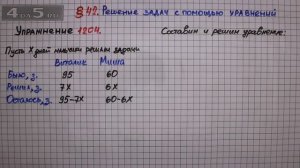 §42. Решение задач с помощью уравнений
Упражнение 1204.
Составим и решим уравнение:
Пусть х дней мальчики решали задачи
Виталик Миша
Было, з. 95 60
Решил, з. 7х 6х
Осталось, з. 95-7х 60-6х